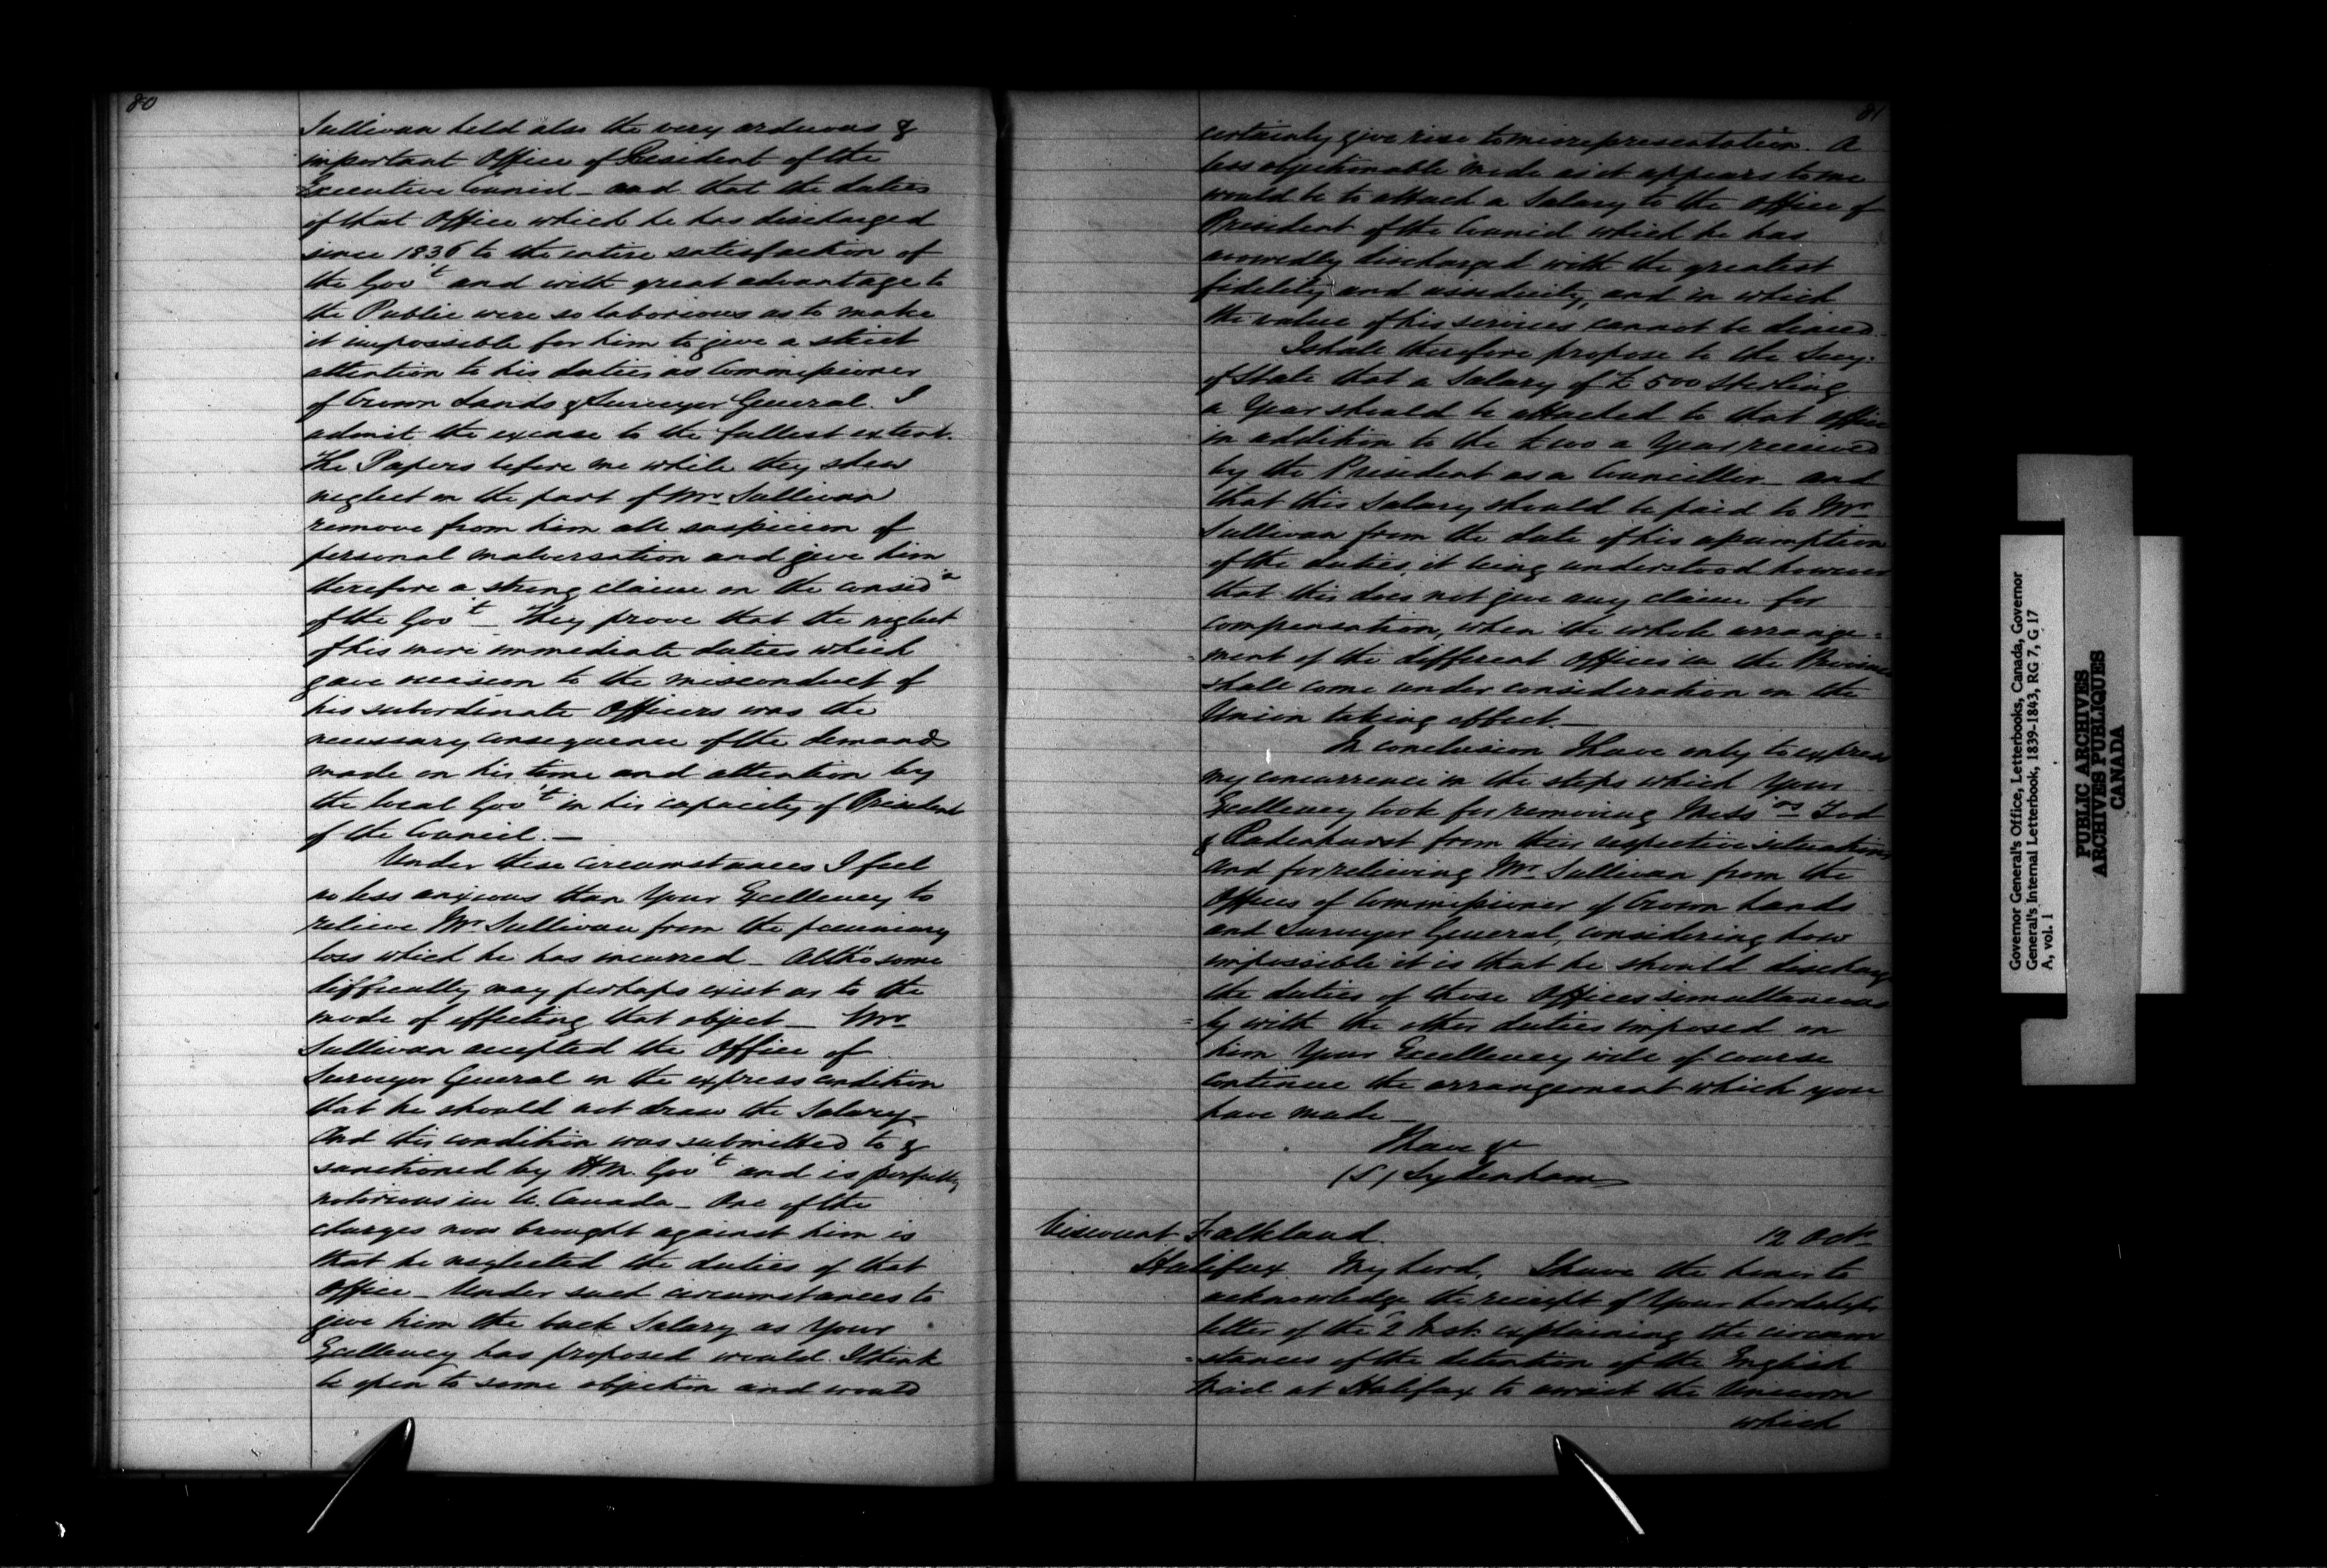 80
Sullivan held also the very arduous &
important Office of President of the
Executive Council - and that the duties
of that Office which he has discharged
since 1836 to the entire satisfaction of
the Gov't and with great advantage to
the Public were so laborious as to make
it impossible for him to give a strict
attention to his duties as Commissioner
of Crown Lands & Surveyor General. I
admit the excuse to the fullest extent.
The Papers before me while they shew
neglect on the part of Mr Sullivan
remove from him all suspicion of
personal malversation and give him
therefore a strong claim on the consed'n
of the Gov't - They prove that the neglect
of his more immediate duties which
gave occasion to the misconduct of
his subordinate Officers was the
necessary consequence of the demands
made on his time and attention by
the local Gov't in his capacity of President
of the Council. -
Under these circumstances I feel
no less anxious than Your Excellency to
relieve Mr Sullivan from the pecuniary
loss which he has incurred - Altho' some
difficulty may perhaps exist as to the
mode of effecting that object - Mr
Sullivan accepted the Office of
Surveyor General on the express condition
that he should not draw the Salary -
And this condition was submitted to &
sanctioned by H.M. Gov't and is perfectly
notorious in U. Canada - One of the
charges now brought against him is
that he neglected the duties of that
Office - Under such circumstances to
give him the back Salary as Your
Excellency has proposed would I think
be open to some objection and would
81
certainly give rise to misrepresentation. A
less objectionable mode as it appears to me
would be to attach a Salary to the Office of
President of the Council which he has
avowedly discharged with the greatest
fidelity and assiduity, and in which
the value of his services cannot be denied.
I shall therefore propose to the Secy.
of State that a Salary of £500 Sterling
a Year should be attached to that Office
in addition to the £100 a Year received
by the President as a Councillor - and
that this Salary should be paid to Mr
Sullivan from the date of his assumption
of the duties, it being understood however
that this does not give any claim for
compensation, when the whole arrange=
=ment of the different Offices in the Province
shall come under consideration on the
Union taking effect. -
In conclusion I have only to express
my concurrence in the steps which Your
Excellency took for removing Mess'rs Tod
& Radenhurst from their respective situations
and for relieving Mr Sullivan from the
Offices of Commissioner of Crown Lands
and Surveyor General, considering how
impossible it is that he should discharge
the duties of those Offices simultaneous
=ly with the other duties imposed on
him Your Excellency will of course
continue the arrangement which you
have made -
I have &c
(S) Sydenham
Viscount Falkland. 12 Octr
Halifax My Lord, I have the honor to
acknowledge the receipt of Your Lordship's
letter of the 2 Inst. explaining the circum
=stances of the detention of the English
Mail at Halifax to await the Unicorn
which
Governor General's Office, Letterbooks, Canada, Governor
General's Internal Letterbook, 1839-1843, RG 7, G 17
A, vol. 1
PUBLIC ARCHIVES
ARCHIVES PUBLIQUES
CANADA